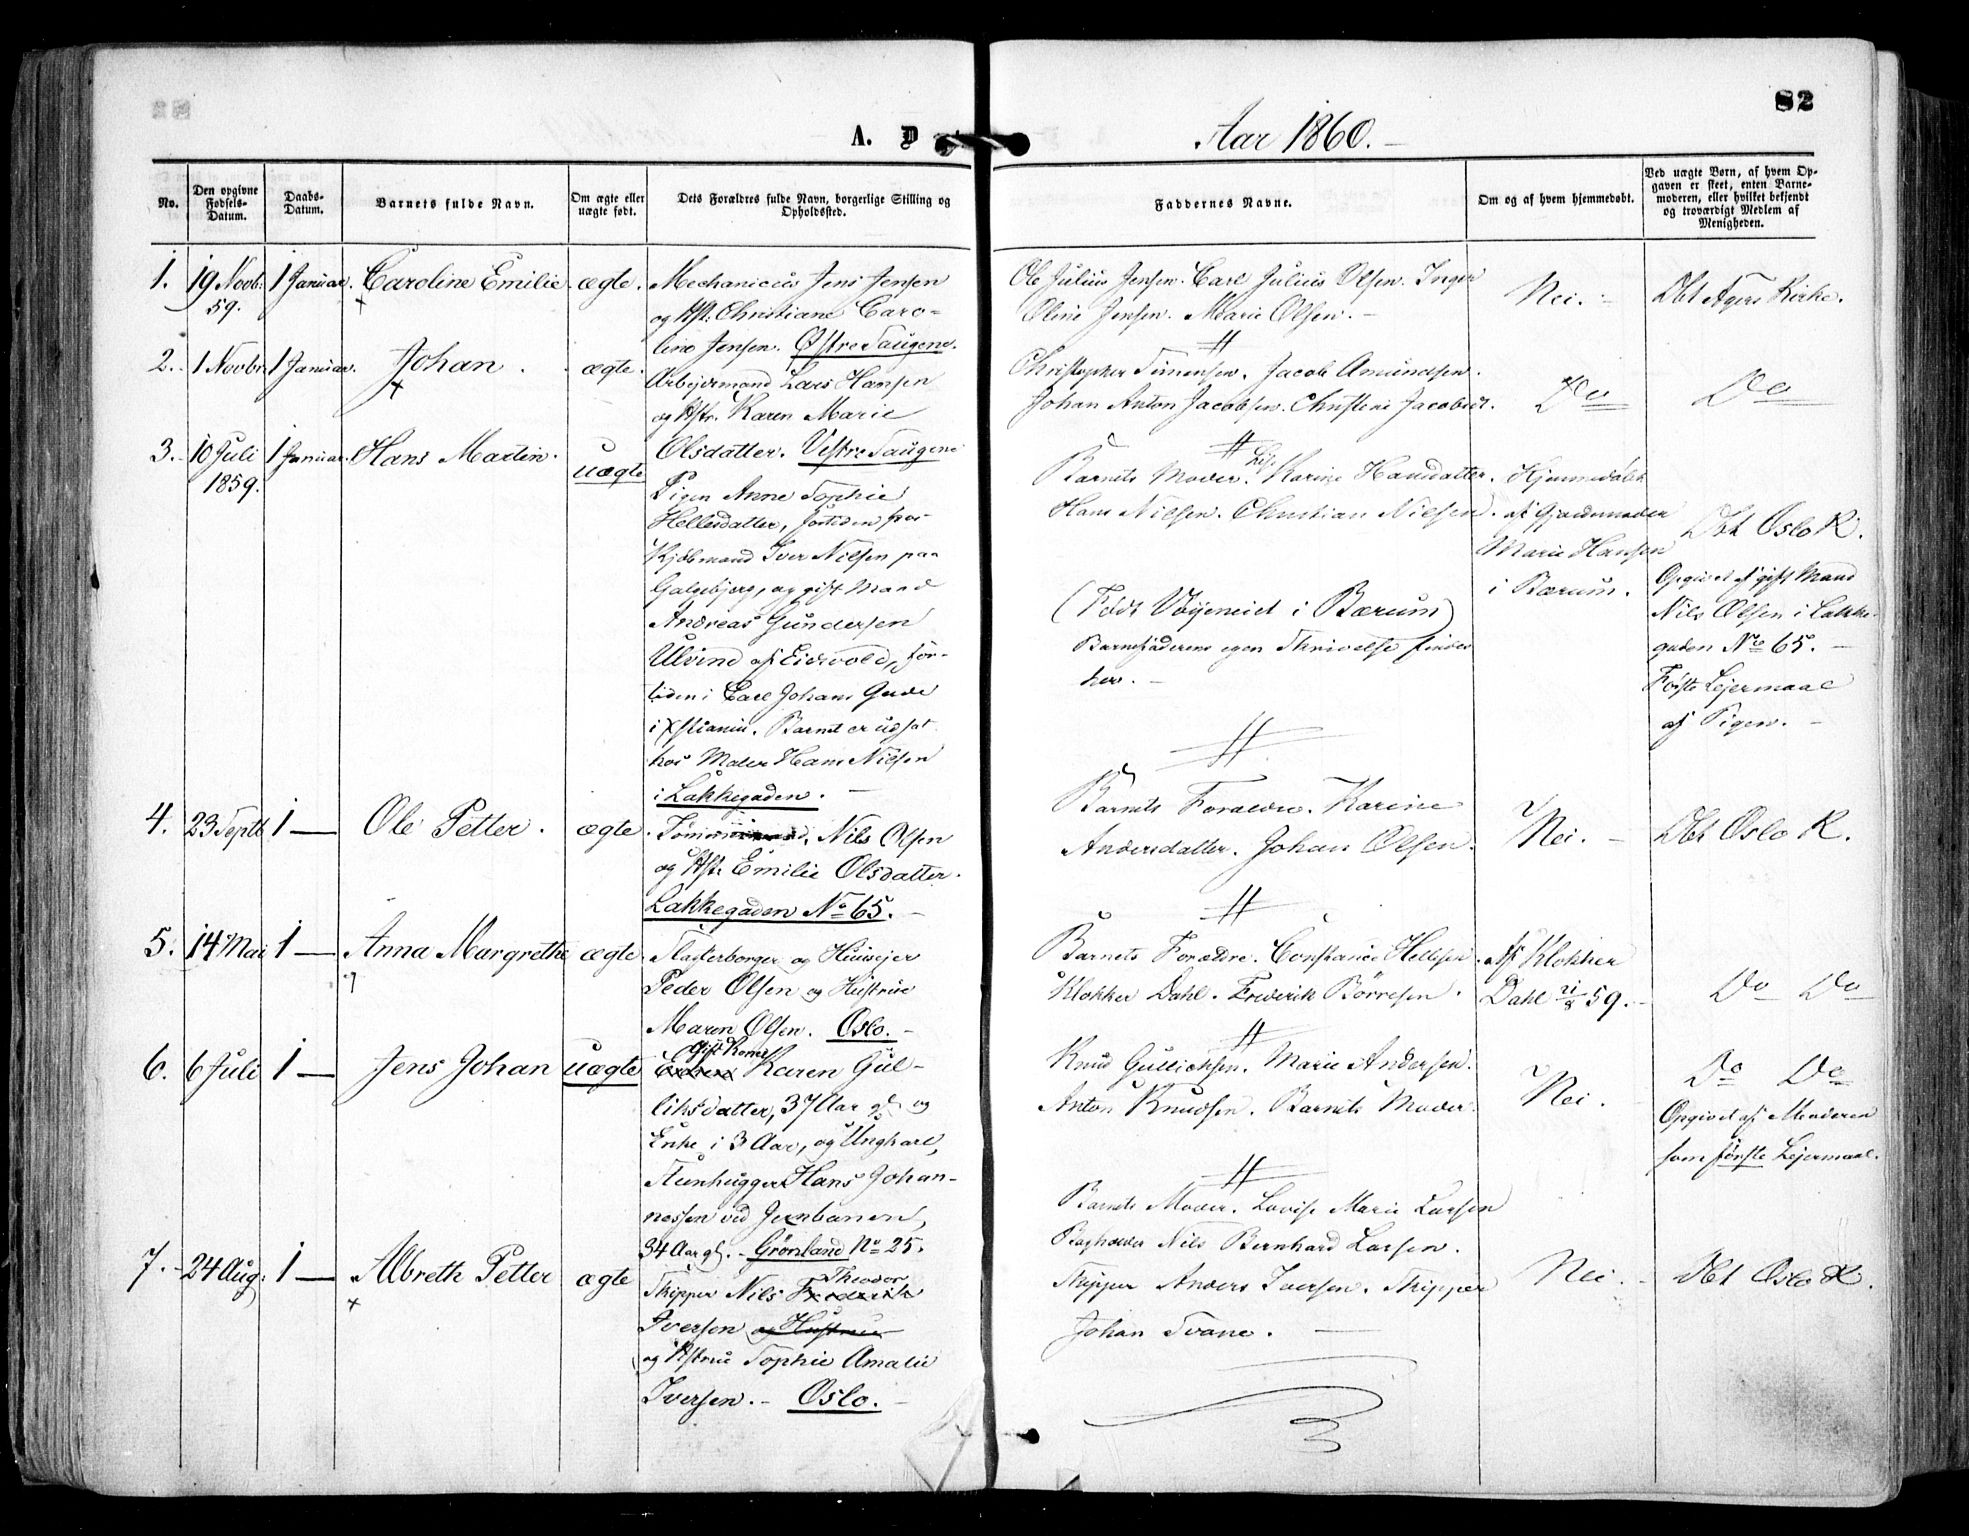 82
A. D
Aar 1860.
No.
Den opgivne Fødsels-Datum.
Daabs-Datum.
Barnets fulde Navn.
Om ægte eller uægte født.
Dets Forældres fulde Navn, borgerlige Stilling og Opholdssted.
Faddernes Navne.
Om og af hvem hjemmedøbt.
Ved uægte Børn, af hvem Opgaven er skeet, enten Barnemoderen, eller hvilket bekjendt og troværdigt Medlem af Menigheden.
1. 19 Novb: 59. 1 Januar. Caroline Emilie ægte.
Mechanicus Jens Jensen
og Hst: Christiane Caro-
line Jensen. Østre Saugene.
Ole Julius Jensen. Carl Julius Olsen. Inger
Oline Jensen. Marie Olsen.
Nei.
Dbt Agers Kirke.
2. 1 Novbr 1 Januar. Johan. ægte.
Arbejermand Lars Hansen
og Hstr. Karen Marie
Olsdatter. Vestre Saugene
Christopher Simensen. Jacob Amundsen.
Johan Anton Jacobsen. Christine Jacobsd.
Do
Do
3. 10 Juli 1859. 1 Januar. Hans Martin. uægte
Pigen Anne Sophie
Hellesdatter, fortiden hos
Kjøbmand Iver Nilsen paa
Galgebjerg, og gift Mand
Andreas Gundersen
Ulvind af Eidsvold, for-
tiden i Carl Johans Gade
i Xstiania. Barnet er udsat
hos Maler Hans Nilsen
i Lakkegaden.
Barnets Moder. Lise Karine Hansdatter.
Hans Nilsen. Christian Nilsen.
(Født Vøjeneid i Bærum)
Barnefaderens egen Skrivelse findes
her.
Hjemmedøbt
af Gjordemoder
Marie Hansen
i Bærum.
Dbt Oslo K.
Opgivet af gift Mand
Nils Olsen i Lakke-
gaden No 65.
Første Lejermaal
af Pigen.
4. 23 Septb 1 — Ole Petter. ægte.
Nils Olsen
og Hst: Emilie Olsdatter.
Lakkegaden No 65.
Barnets Forældre. Karine
Andersdatter. Johan Olsen.
Nei.
Dbt Oslo K.
5. 14 Mai 1 — Anna Margrethe ægte
Slagterborger og Huusejer
Peder Olsen og Hustrue
Maren Olsen. Oslo.
Barnets Forældre. Constance Hellesen.
Klokker Dahl. Frederik Børresen.
Af Klokker
Dahl 21/8 59.
Do Do
6. 6 Juli 1 — Jens Johan uægte
Gift Kone
Karen Gul-
liksdatter, 37 Aar gl. og
Enke i 3 Aar, og Ungkarl,
Steenhugger Hans Johan-
nessen ved Jernbanen,
34 Aar gl. - Grønland No 25.
Knud Gullichsen. Marie Andersen.
Anton Knudsen. Barnets Moder.
Nei.
Do Do
Opgivet af Moderen
som første Lejermaal.
7. 24 Aug: 1 — Albreth Petter ægte
Theodor
Skipper Nils Frederik
Iversen og Hustrue
og Hstrue Sophie Amalie
Iversen. - Oslo.
Barnets Moder. Lovise Marie Larsen
Bogholder Nils Bernhard Larsen.
Skipper Anders Iversen. Skipper
Johan Svane.
Nei.
Dbt Oslo K.